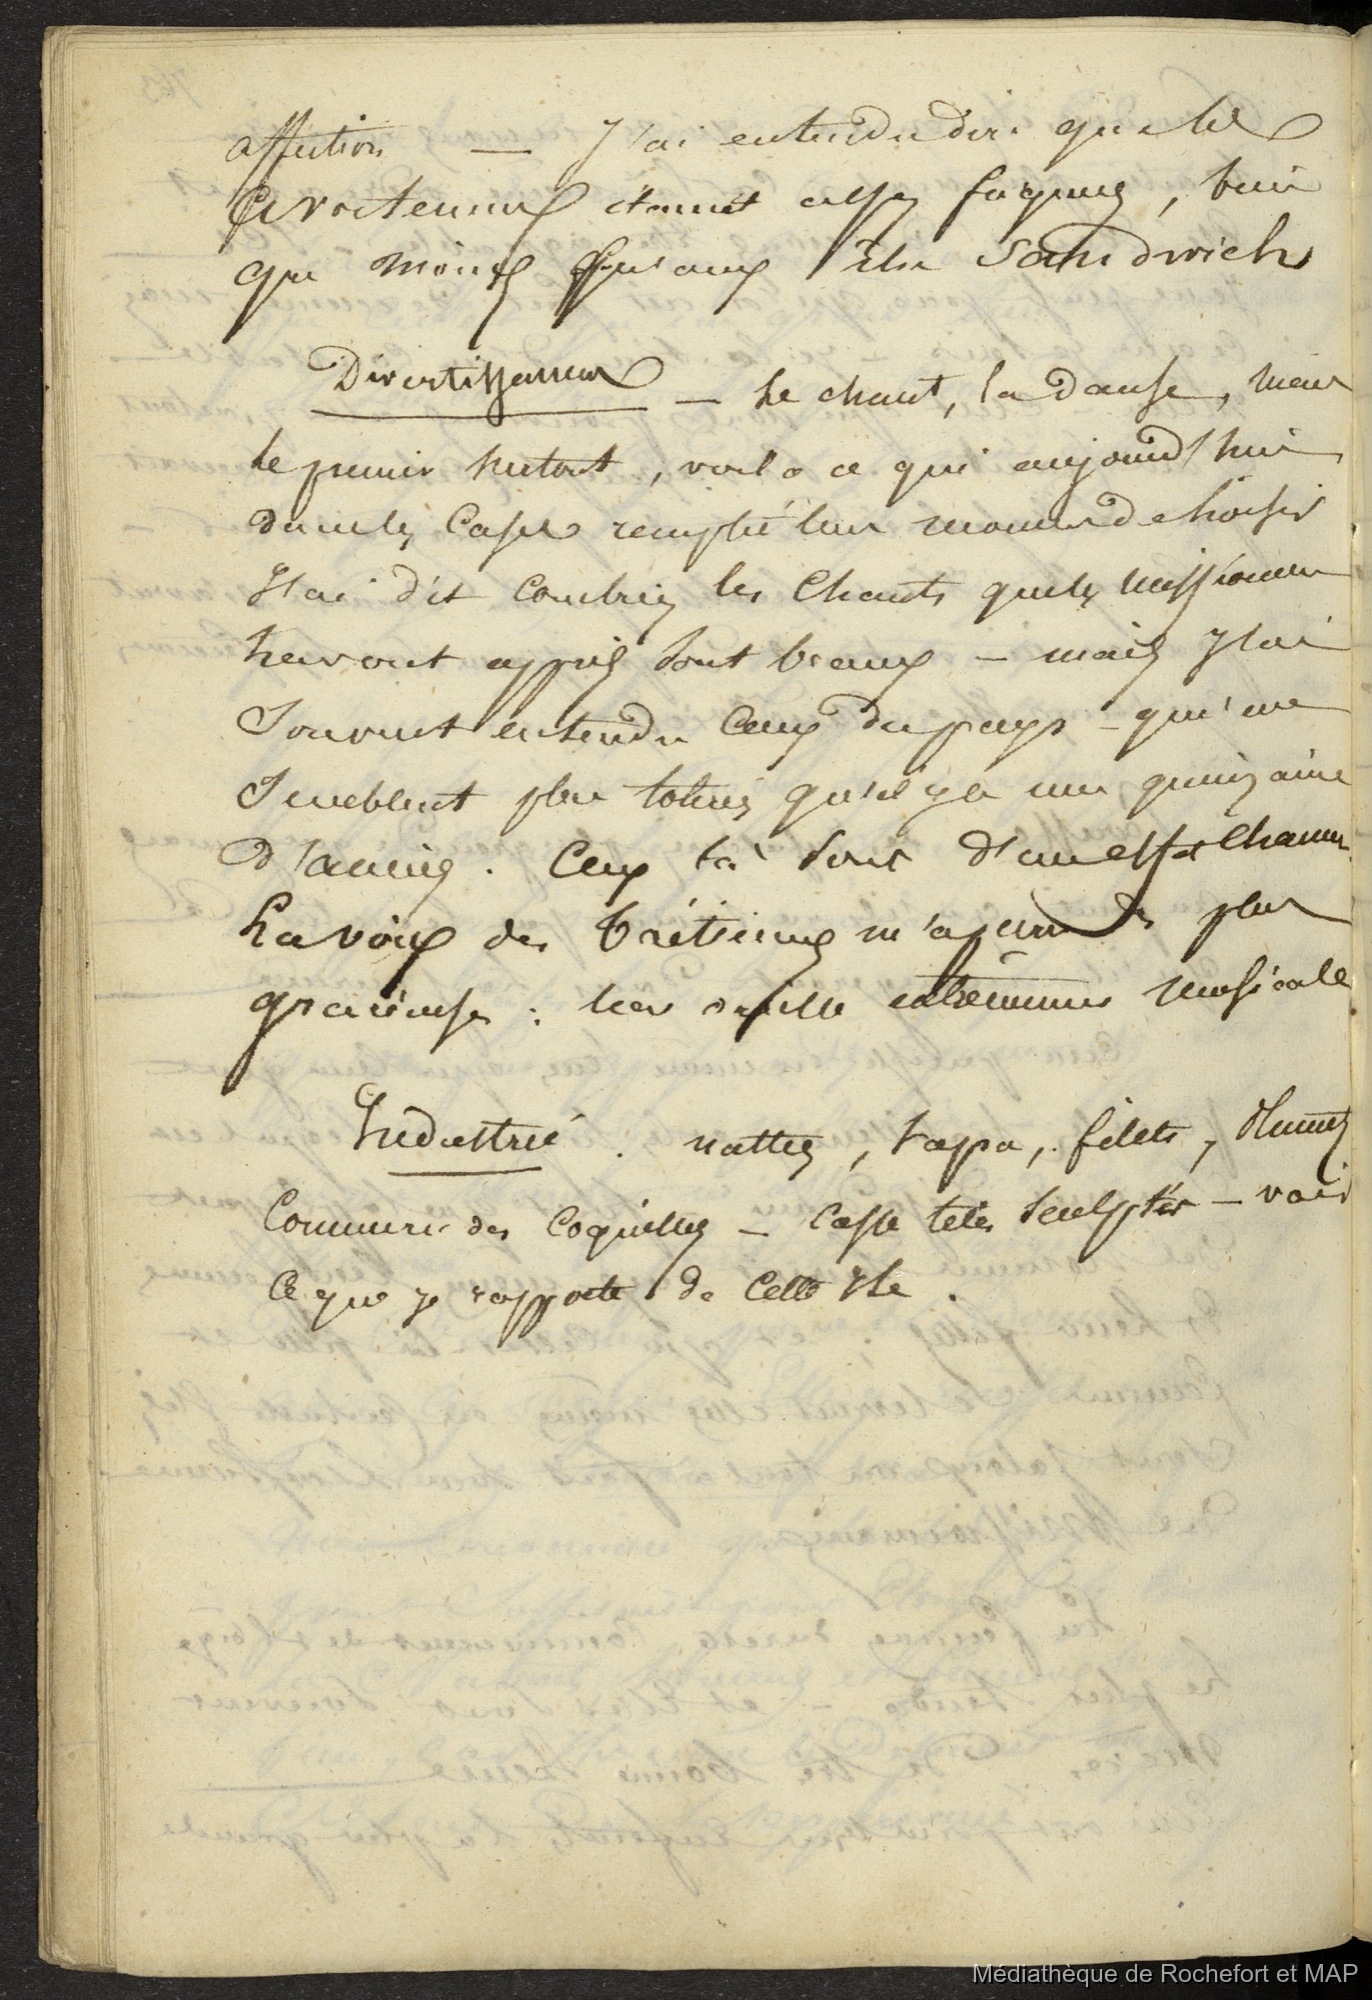 affection — J'ai entendu dire que les
avortemens étaient assez fréquens, bien
que moins qu'aux îles Sandwich
Divertissemens — le chant, la danse, mais
le premier surtout, voila ce qui aujourd'hui
dans les cases remplit leur momens de loisir
J'ai dit combien les chants que les missionnaires
leur ont appris sont beaux — mais j'ai
souvent entendu ceux du pays - qui me
semblent plus tolerés qu'il y a une quinzaine
d'années. Ceux là sont d'un effet charmant
La voix des Taïtiennes m'a paru des plus
gracieuse : leur oreille extrêmement musicale
Industrie. nattes, tapa, filets, plumes
Commerce des coquilles — casse têtes sculptés — voici
ce que je rapporte de cette île.
Médiathèque de Rochefort et MAP